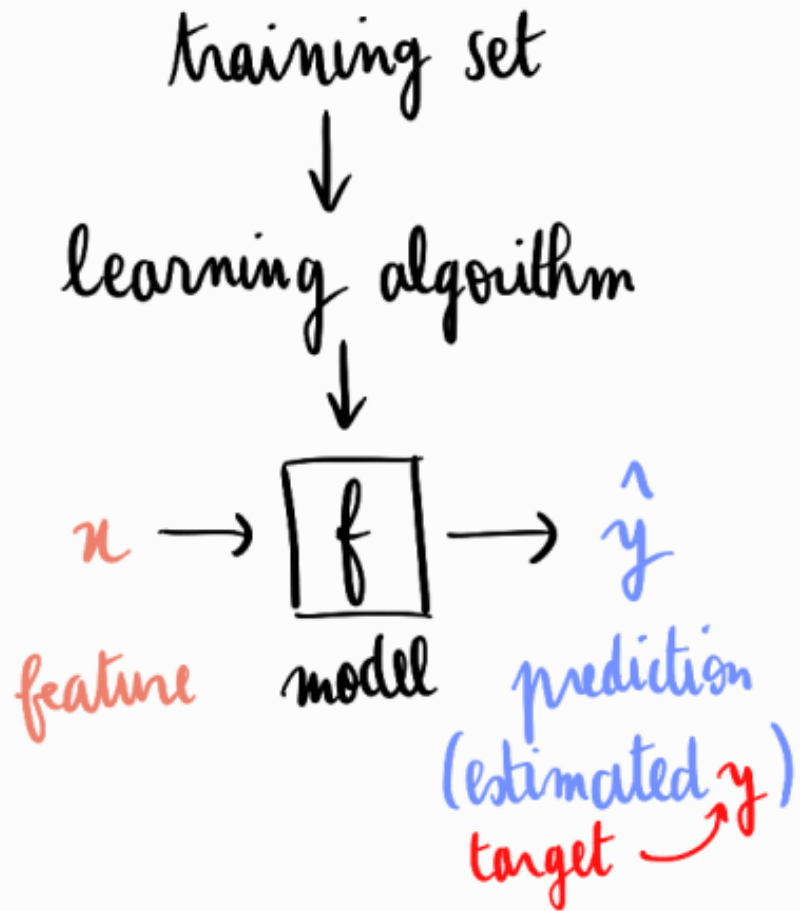 training set
learning algorithm
x f ŷ
feature model prediction
(estimated y)
target